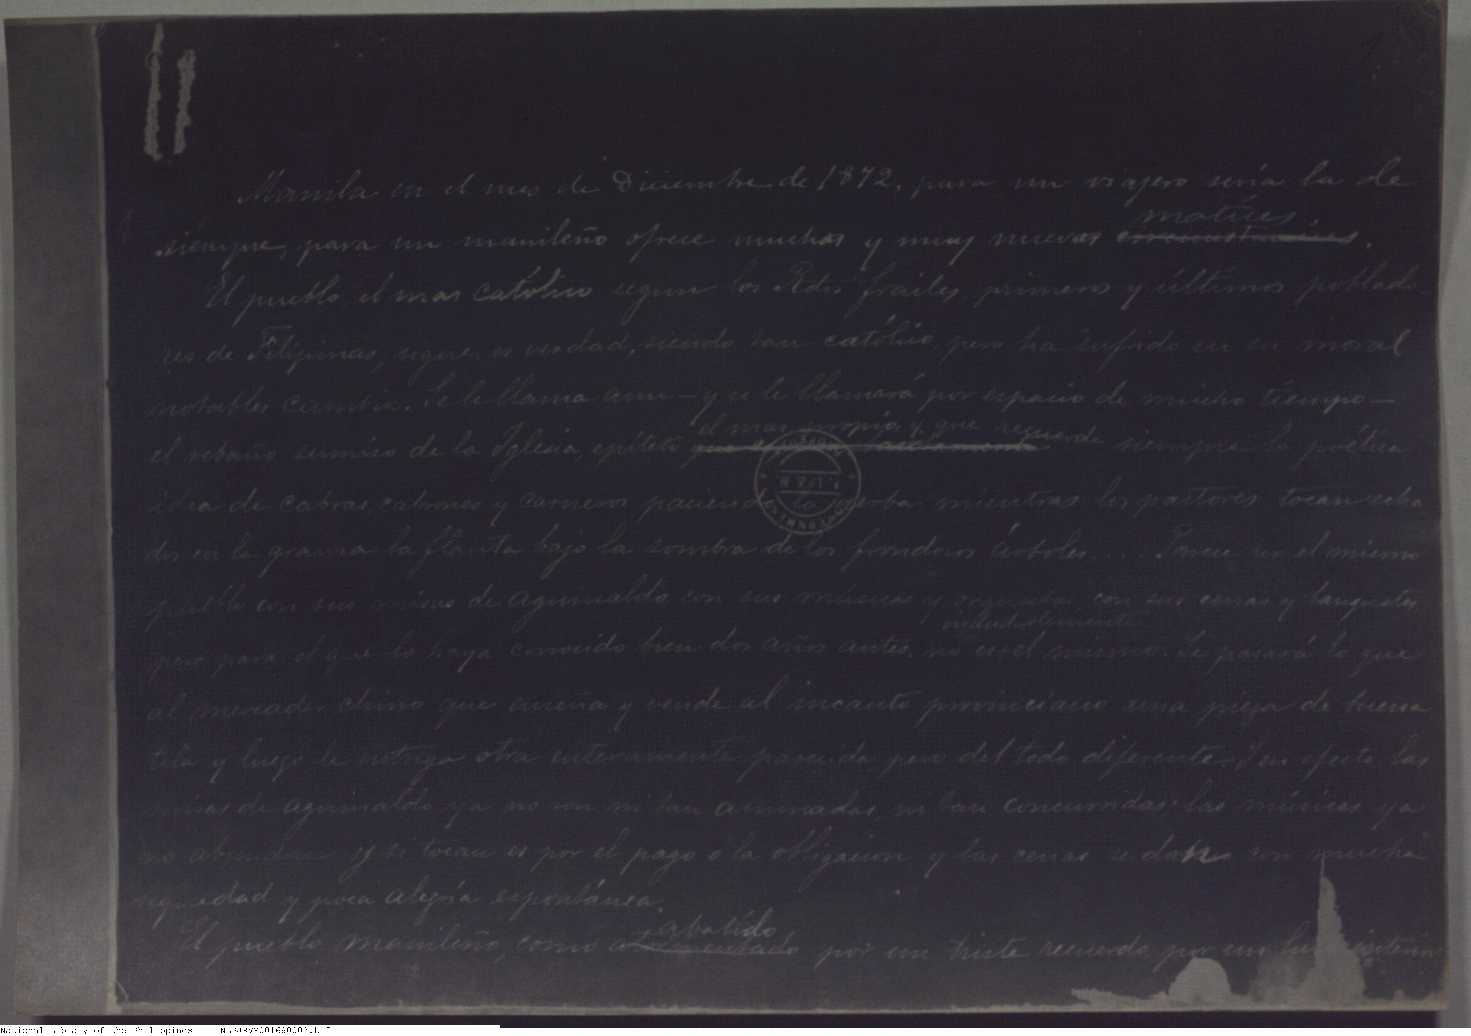 Manila en el mes de Diciembre de 1872, para un viajero sería la de
matices.
siempre, para un manileño ofrece muchos y muy nuevos circunstancias.
El pueblo el mas católico segun los Rdos frailes, primeros y últimos poblado-
res de Filipinas, sigue, es verdad, siendo tan católico, pero ha sufrido en su moral
notables cambios. Se le llama aun — y se le llamará por espacio de mucho tiempo —
el mas propio y que recuerde
el rebaño sumiso de la Iglesia, epíteto siempre la poética
idea de cabras, cabrones y carneros paciendo la yerba mientras los pastores tocan echa
dos en la grama la flauta bajo la sombra de los frondosos árboles.... Parece ser el mismo
pueblo con sus misas de aguinaldo, con sus músicas y con sus cenas y banquetes
indudablemente
pero para el que lo haya conocido bien dos años antes, no es el mismo. Le pasará lo que
al mercader chino que enseña y vende al incauto provinciano una pieza de buena
tela y luego le entrega otra enteramente parecida pero del todo diferente. Y en efecto las
misas de aguinaldo ya no son ni tan animadas, ni tan concurridas; las músicas ya
no abundan y si tocan es por el pago o la obligacion y las cenas se dan con mucha
sequedad y poca alegría espontánea.
abatido
El pueblo manileño, como por un triste recuerdo, por un
National Library of the Philippines